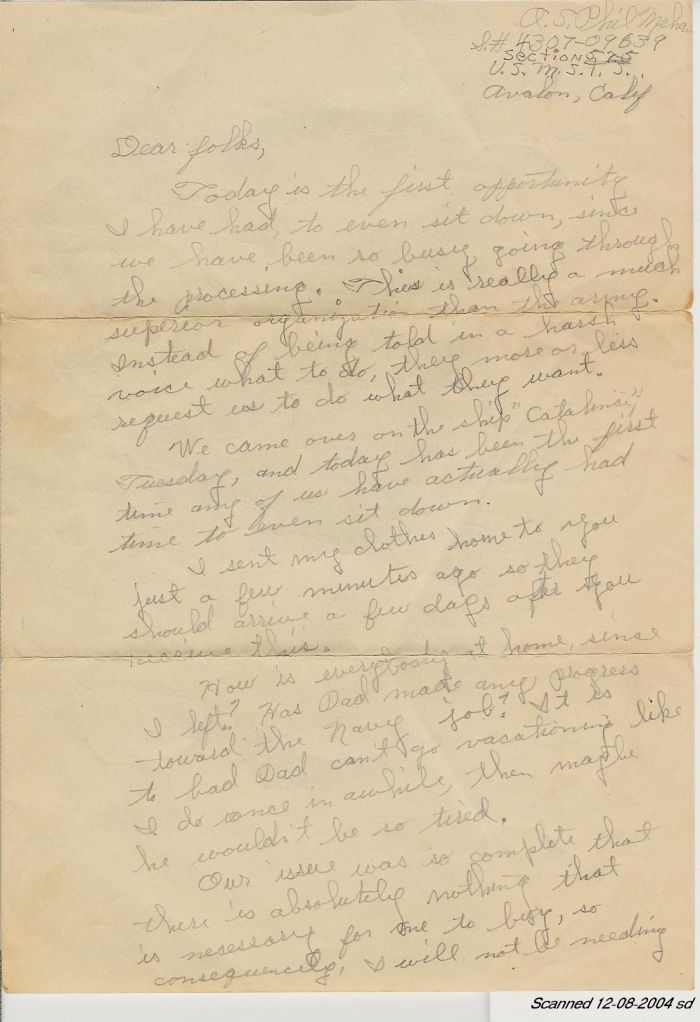 A.S. Phil
S.# 4307-09639
Section 575
U.S.M.S.T.S.
Avalon, Calif
Dear folks,
Today is the first opportunity
I have had, to even sit down, since
we have been so busy going through
the processing. This is really a much
superior organization than the army.
Instead of being told in a harsh
voice what to do, they more or less
request us to do what they want.
We came over on the ship "Catalina",
Tuesday, and today has been the first
time any of us have actually had
time to even sit down.
I sent my clothes home to you
just a few minutes ago so they
should arrive a few days after you
receive this.
How is everybody at home, since
I left? Has Dad made any progress
toward the Navy job? It is
to bad Dad can't go vacationing like
I do wonce in awhile, then maybe
he wouldn't be so tired.
Our issue was so complete that
there is absolutely nothing that
is nesessary for me to buy, so
consequencely, I will not be needing
Scanned 12-08-2004 sd